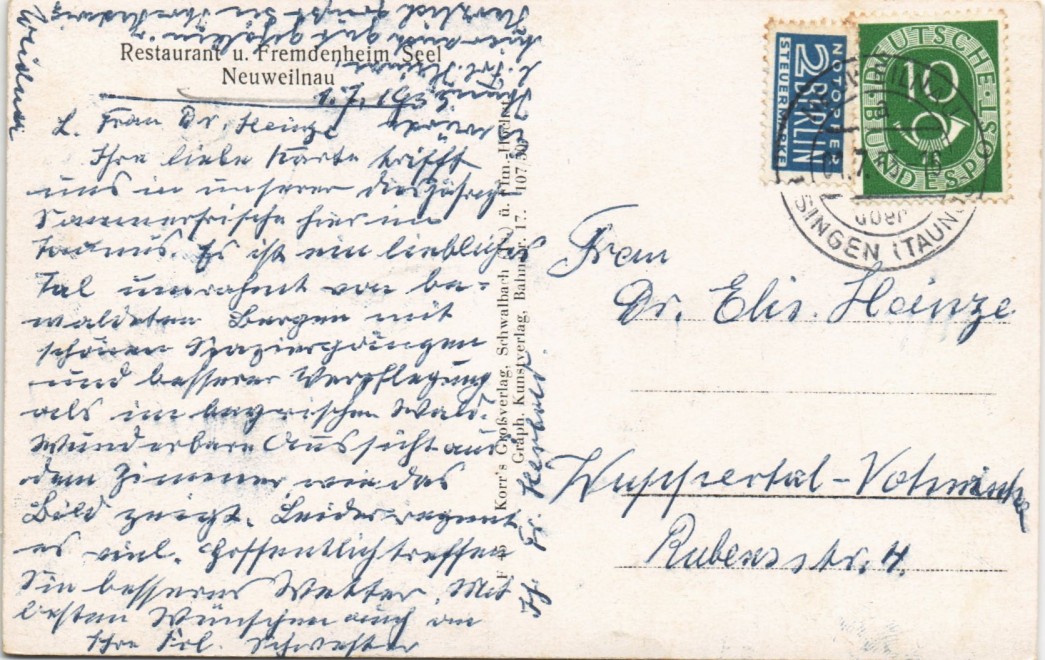 Restaurant u. Fremdenheim Seel
Neuweilnau
1.7.1953.
L. Frau Dr. Heinze
Ihre liebe Karte trifft
uns in unserer diesjährige
Sommerfrische hier im
Taunus. Es ist ein liebliches
Tal umrahmt von be-
waldeten Bergen mit
schönen Spaziergängen
und besserer Verpflegung
als im bayrischen Wald.
Wunderbare Aussicht aus
dem Zimmer wie das
Bild zeigt. Leider regnet
es viel. Hoffentlich treffen
Sie besseres Wetter. Mit
besten Wünschen auch an
Ihre Frl. Schwester
Korr's Großverlag, Schwalbach
Graph. Kunstverlag, Bahnstr. 17.
NOTOPFER
2 BERLIN
STEUERMARKE
DEUTSCHE
BUNDESPOST
10
SINGEN (TAUNUS)
Frau
Dr. Elis. Heinze
Wuppertal-Vohwinkel
Rubensstr. 4.